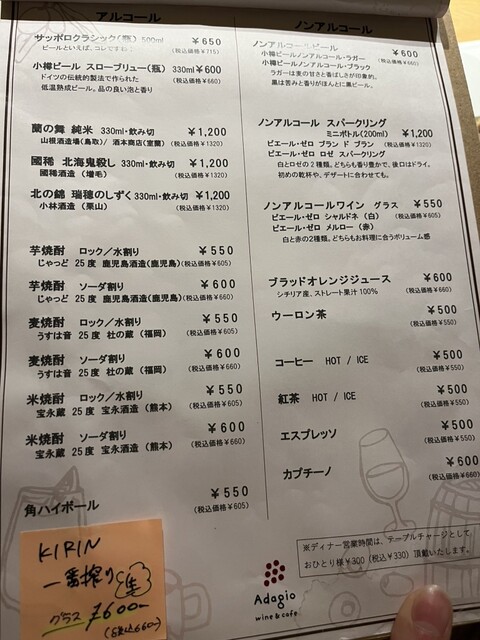 アルコール
サッポロクラシック(瓶) 500ml ¥650
ビールといえば、コレですね (税込価格¥715)
小樽ビール スローブリュー(瓶) 330ml ¥600
ドイツの伝統的製法で作られた (税込価格¥660)
低温熟成ビール。品の良い泡と香り
蘭の舞 純米 330ml・飲み切 ¥1,200
山根酒造場(鳥取)/ 酒本商店(室蘭) (税込価格¥1320)
國稀 北海鬼殺し 330ml・飲み切 ¥1,200
國稀酒造 (増毛) (税込価格¥1320)
北の錦 瑞穂のしずく 330ml・飲み切 ¥1,200
小林酒造 (栗山) (税込価格¥1320)
芋焼酎 ロック/水割り ¥550
じゃっど 25度 鹿児島酒造(鹿児島) (税込価格¥605)
芋焼酎 ソーダ割り ¥600
じゃっど 25度 鹿児島酒造(鹿児島) (税込価格¥660)
麦焼酎 ロック/水割り ¥550
うすは音 25度 杜の蔵 (福岡) (税込価格¥605)
麦焼酎 ソーダ割り ¥600
うすは音 25度 杜の蔵 (福岡) (税込価格¥660)
米焼酎 ロック/水割り ¥550
宝永蔵 25度 宝永酒造 (熊本) (税込価格¥605)
米焼酎 ソーダ割り ¥600
宝永蔵 25度 宝永酒造 (熊本) (税込価格¥660)
角ハイボール ¥550
(税込価格¥605)
KIRIN
一番搾り 生
グラス ¥600-
(税込660-)
ノンアルコール
ノンアルコールビール ¥600
小樽ビールノンアルコール・ラガー (税込価格¥660)
小樽ビールノンアルコール・ブラック
ラガーは麦の甘さと香ばしさが印象的。
黒は苦みと香りがほんとに黒ビール。
ノンアルコール スパークリング
ミニボトル(200ml) ¥1,200
ピエール・ゼロ ブラン ド ブラン (税込価格¥1320)
ピエール・ゼロ ロゼ スパークリング
白とロゼの2種類。どちらも香り豊かで、後口はドライ。
初めの乾杯や、デザートに合わせても。
ノンアルコールワイン グラス ¥550
ピエール・ゼロ シャルドネ (白) (税込価格¥605)
ピエール・ゼロ メルロー (赤)
白と赤の2種類。どちらもお料理に合うボリューム感
ブラッドオレンジジュース ¥600
シチリア産、ストレート果汁100% (税込価格¥660)
ウーロン茶 ¥500
(税込価格¥550)
コーヒー HOT / ICE ¥500
(税込価格¥550)
紅茶 HOT / ICE ¥500
(税込価格¥550)
エスプレッソ ¥500
(税込価格¥550)
カプチーノ ¥600
(税込価格¥660)
※ディナー営業時間は、テーブルチャージとして
おひとり様¥300 (税込¥330) 頂戴いたします。
Adagio
wine & cafe